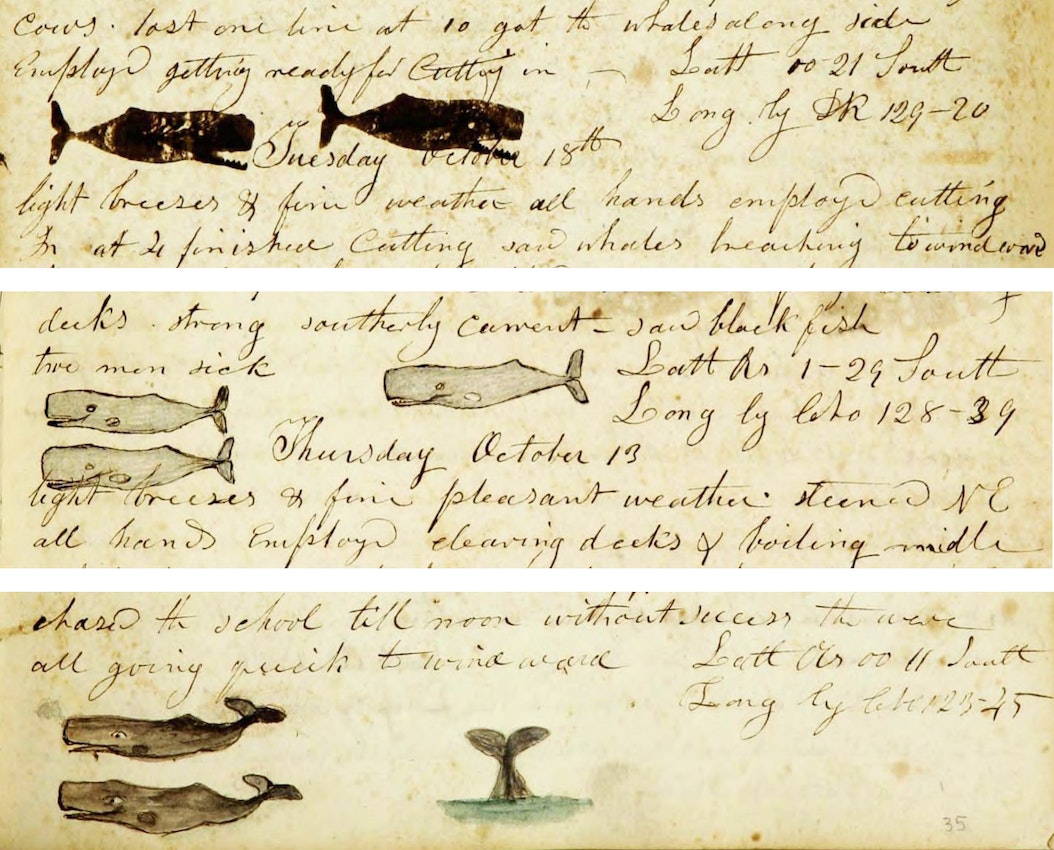 cows. lost one line at 10 got th whales along side
Employd getting ready for Cutting in – Latt 00 21 South
Long by DR 129–20
Tuesday October 18th
light breezes & fine weather all hands employd cutting
In at 4 finished Cutting saw whales breaching to windward
decks. strong southerly current – saw black fish
two men sick Latt Obs 1–29 South
Long by Chro 128–39
Thursday October 13
light breezes & fine pleasant weather. steered NE
all hands Employd clearing decks & boiling middle
chased th school till noon without success the were
all going quick to windward Latt Obs 00 11 South
Long by Chro 123–45
35